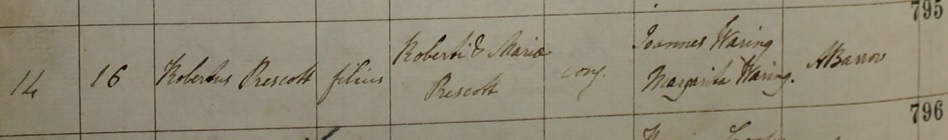 795
14 16 Robertus Prescott filius Roberti & Mariæ conj. Joannes Waring A Barrow
Prescott Margarita Waring.
796